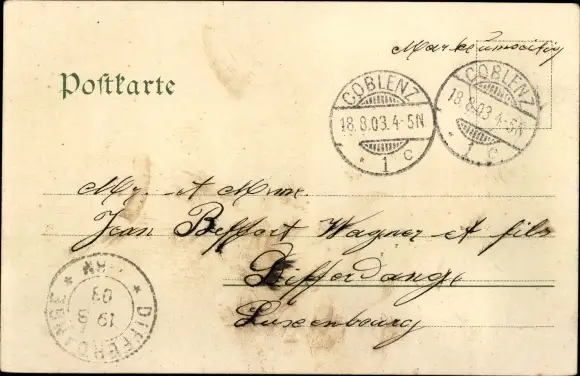 Marke umseitig
Postkarte
COBLENZ
18.8.03.4-5N
* 1 c
COBLENZ
18.8.03.4-5N
* 1 c
Mr. et Mme.
Jean Beffort Wagner et fils
Differdange
Luxembourg
DIFFERDANGE
19 8
03